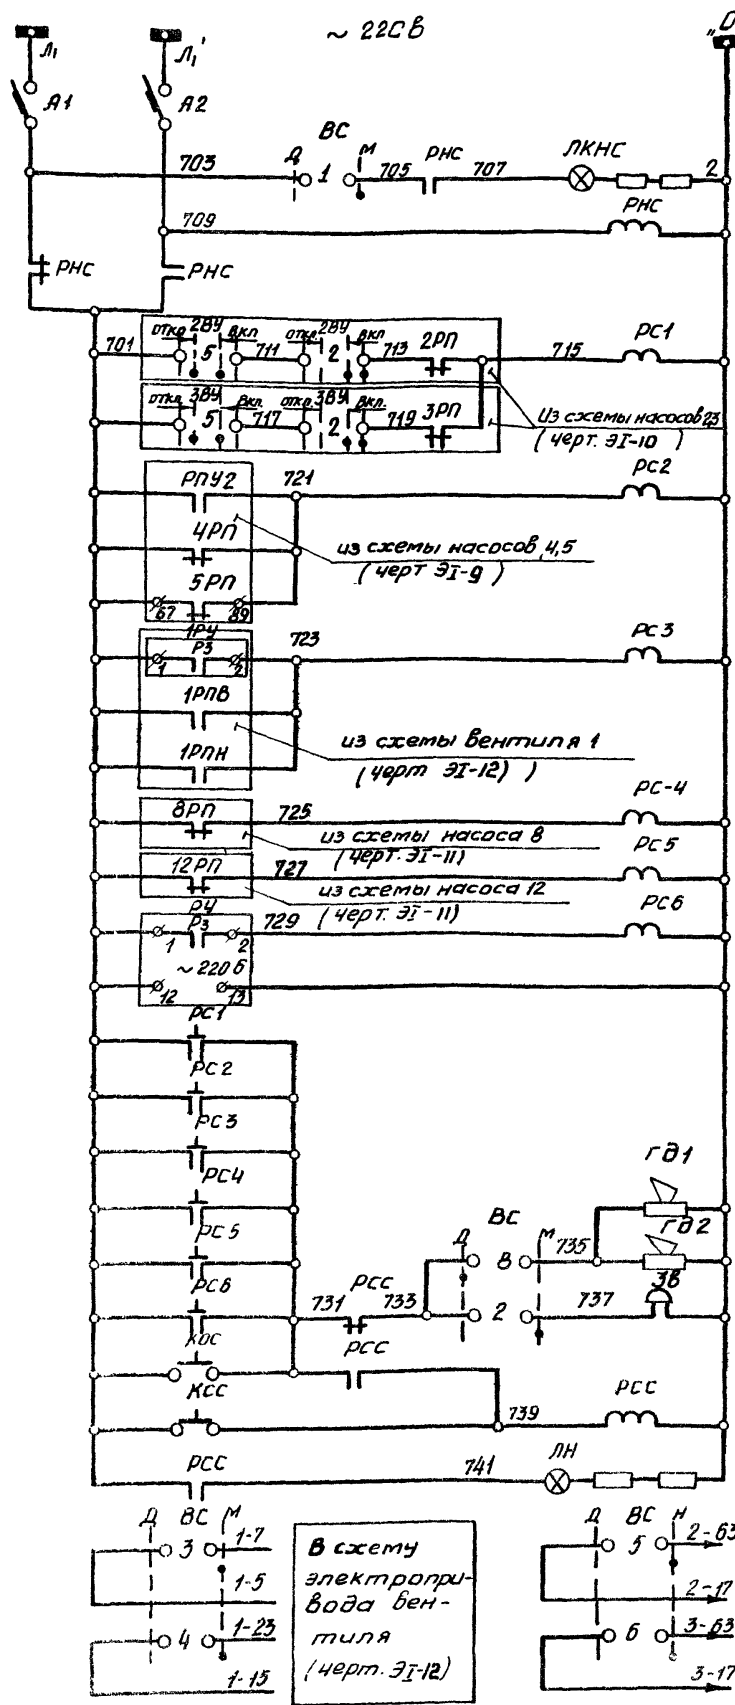 ~ 220 в
Л₁
Л₁'
"0
А1
А2
703
Д
ВС
1
М
705
РНС
707
ЛКНС
2
709
РНС
РНС
РНС
701
откл
2ВУ
5
вкл
711
откл
2ВУ
2
вкл
713
2РП
715
РС1
откл
3ВУ
5
вкл
717
откл
3ВУ
2
вкл
719
3РП
Из схемы насосов 23
(черт. ЭI-10)
РПУ2
721
РС2
4РП
из схемы насосов 4,5
(черт ЭI-9)
5РП
67
89
1РУ
Р3
1
2
723
РС3
1РПВ
из схемы вентиля 1
(черт ЭI-12) )
1РПН
8РП
725
РС-4
из схемы насоса 8
(черт. ЭI-11)
12РП
727
РС5
из схемы насоса 12
(черт. ЭI-11)
РУ
Р3
1
2
729
РС6
~ 220 б
12
13
РС1
РС2
РС3
РС4
РС5
РС6
КОС
КСС
731
РСС
733
Д
ВС
8
М
735
ГД1
ГД2
2
737
ЗВ
РСС
739
РСС
РСС
741
ЛН
Д ВС М
3
1-7
1-5
4
1-23
1-15
В схему
электропри-
вода вен-
тиля
(черт. ЭI-12)
Д ВС Н
5
2-63
2-17
6
3-63
3-17